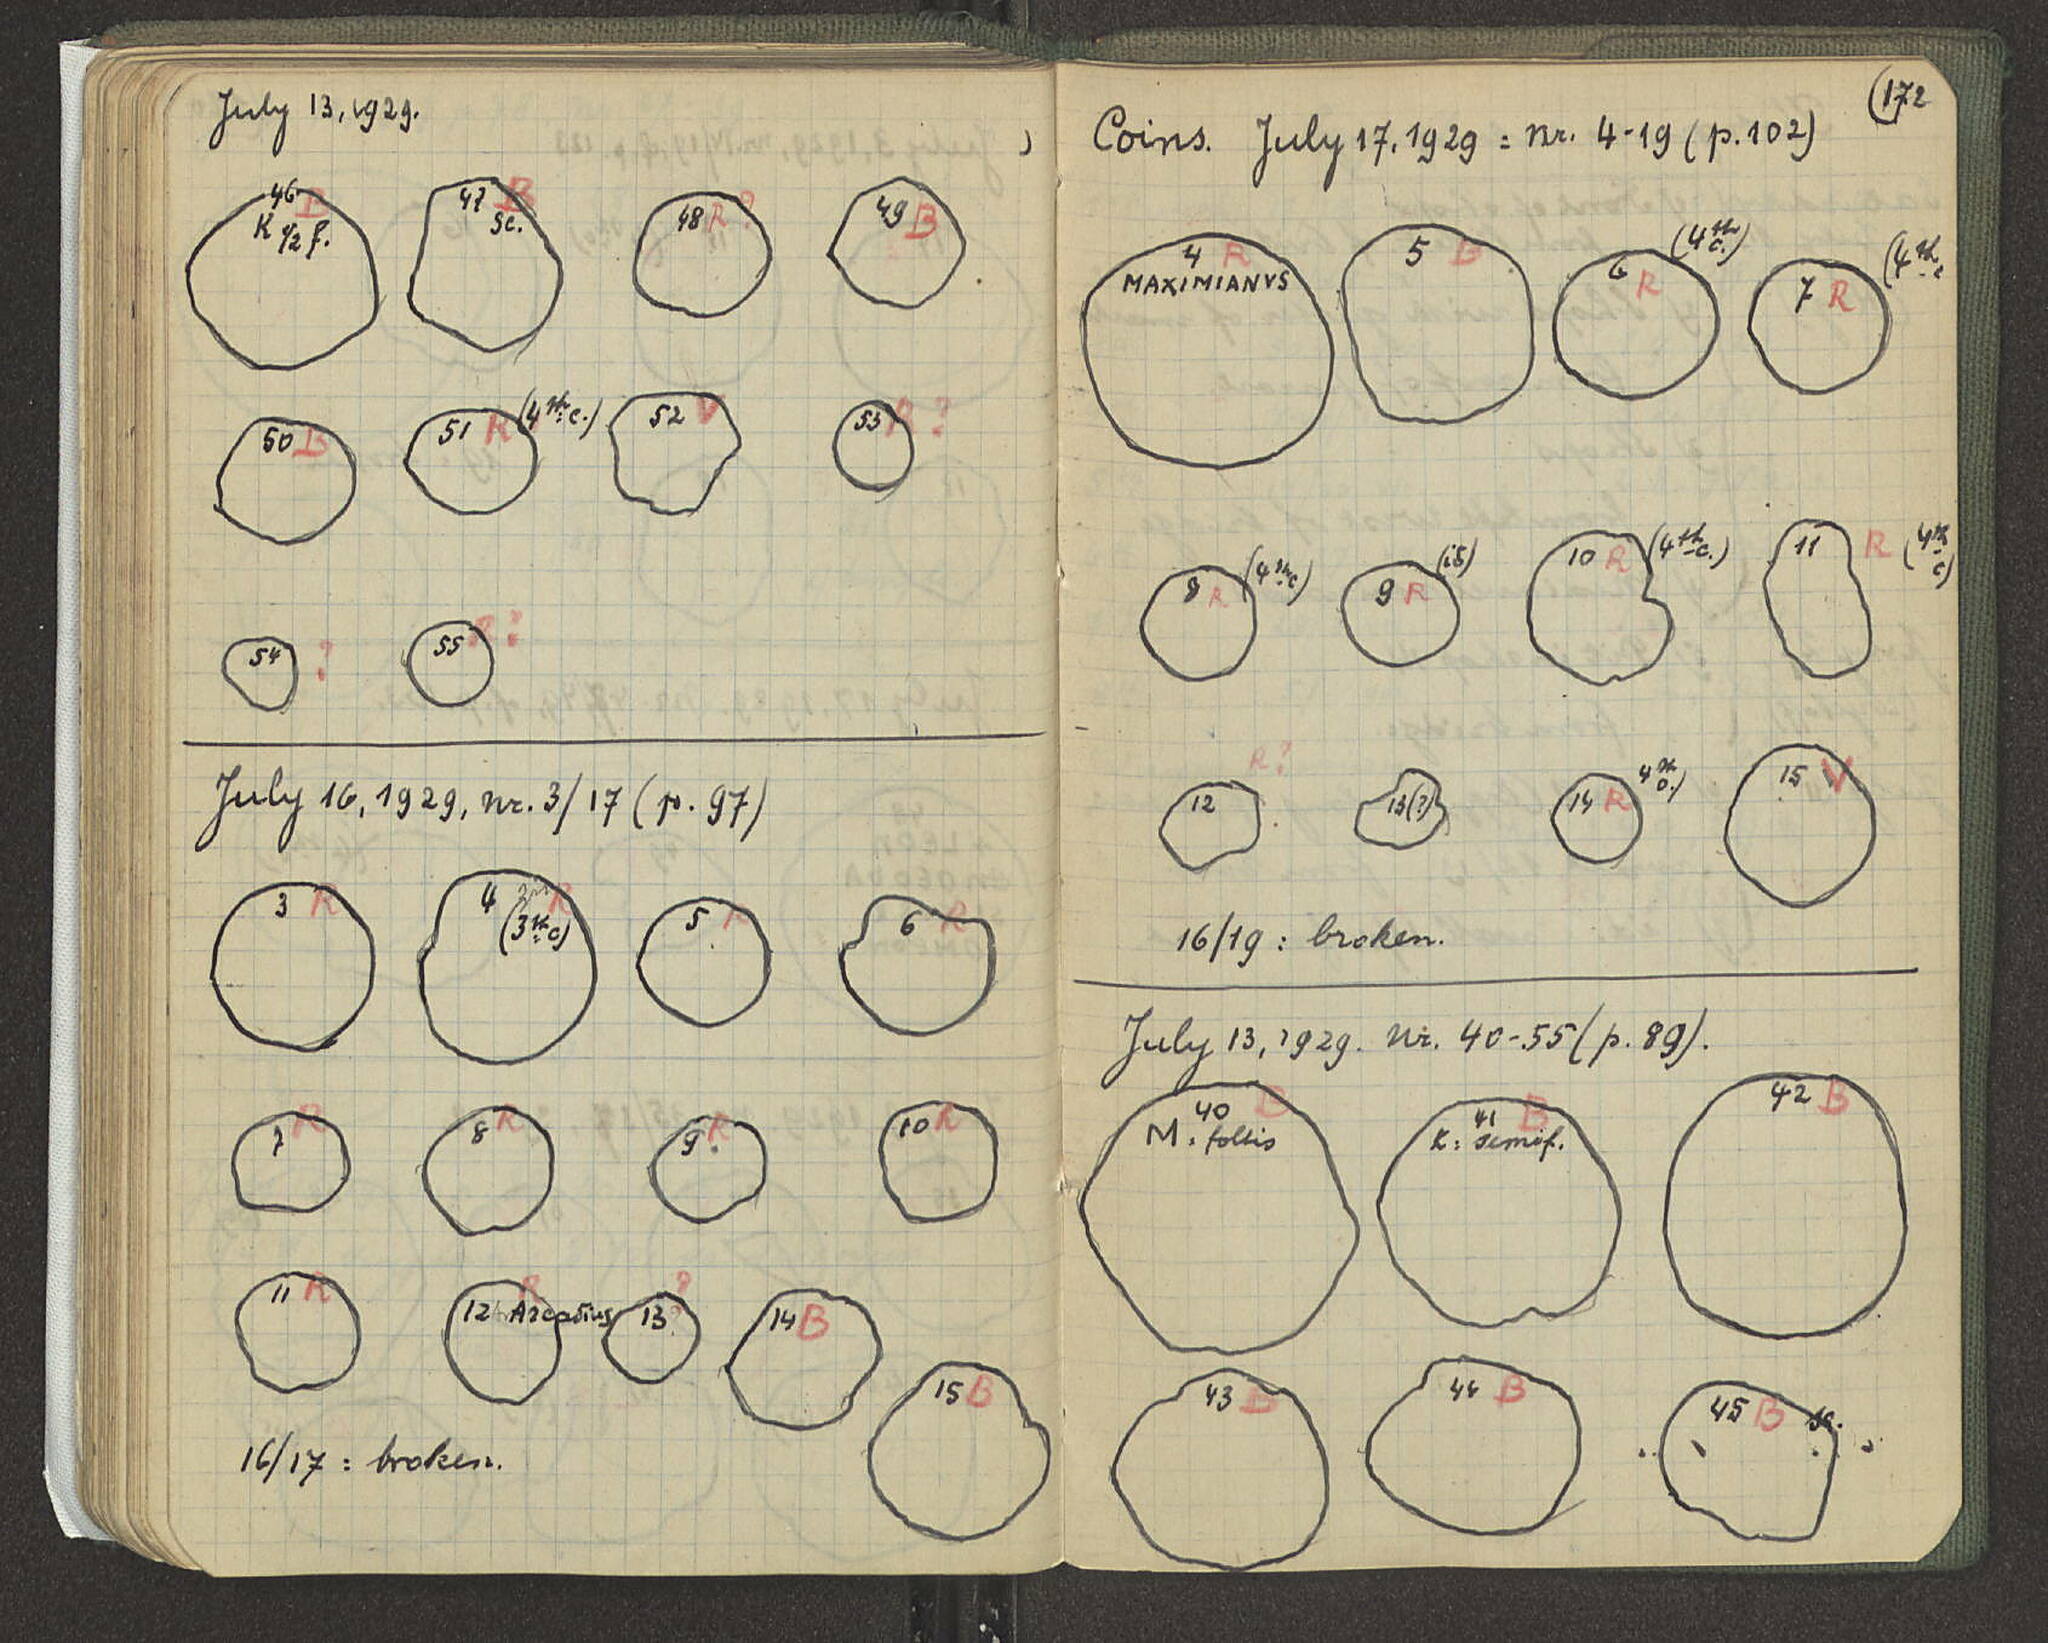 July 13, 1929.
46 B
K 1/2 f.
47 B
sc.
48 R?
49 B
50 B
51 R (4th c.)
52 V
53 R?
54 ?
55 R?
July 16, 1929, nr. 3/17 (p. 97)
3 R
4 R
(3rd c)
5 R
6 R
7 R
8 R
9 R
10 R
11 R
12 R Arcadius
13 ?
14 B
15 B
16/17 : broken.
172
Coins. July 17, 1929 = Nr. 4-19 (p. 102)
4 R
MAXIMIANVS
5 B
6 R (4th c.)
7 R (4th c
8 R (4th c)
9 R (id)
10 R (4th c.)
11 R (4th c)
12 R?
13(?)
14 R 4th c.)
15 V
16/19 : broken.
July 13, 1929. Nr. 40-55 (p. 89).
40 B
M : follis
41 B
K : semif.
42 B
43 B
44 B
45 B sc.